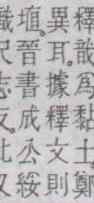 釋爲黏土鄭
異耳戠據釋文則
埴晉書成公綏
識尺志反此又